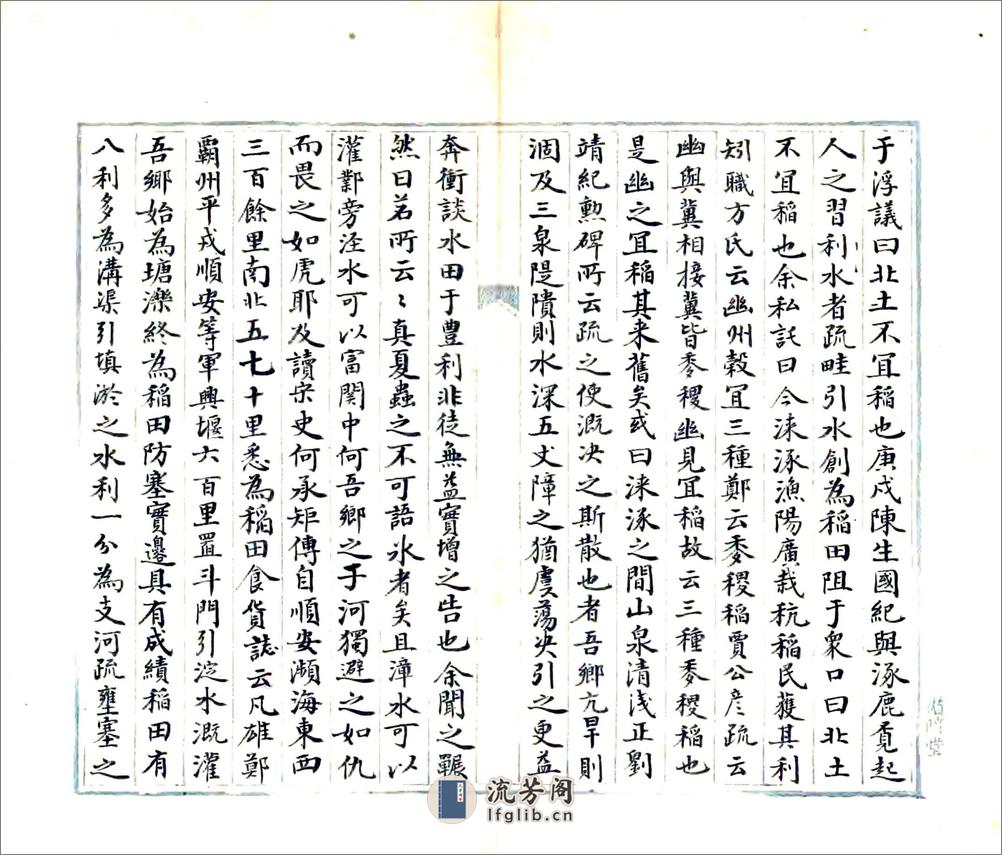 于浮議曰北土不宜稻也庚戌陳生國紀與涿鹿賈起
人之習利水者疏畦引水創為稻田阻于衆口曰北土
不宜稻也余私託曰今淶涿漁陽廣栽秔稻民蒦其利
矧職方氏云幽州穀宜三種鄭云黍稷稻賈公彥疏云
幽與冀相接冀皆黍稷幽見宜稻故云三種黍稷稻也
是幽之宜稻其来舊矣或曰淶涿之間山泉清浅正劉
靖紀勲碑所云疏之使溉决之斯散也者吾鄉亢旱則
涸及三泉隄隤則水深五丈障之猶虞蕩决引之更益
奔衝談水田于豊利非徒無益實增之告也余聞之輾
然曰若所云〻真夏蟲之不可語氷者矣且漳水可以
灌鄴旁涇水可以富関中何吾鄉之于河獨避之如仇
而畏之如虎耶及讀宋史何承矩傳自順安瀕海東西
三百餘里南北五七十里悉為稻田食貨誌云凡雄鄭
霸州平戎順安等軍興堰六百里置斗門引淀水溉灌
吾鄉始為塘濼終為稻田防塞實邊具有成績稻田有
八利多為溝渠引填淤之水利一分為支河疏壅塞之
流芳阁
lfglib.cn